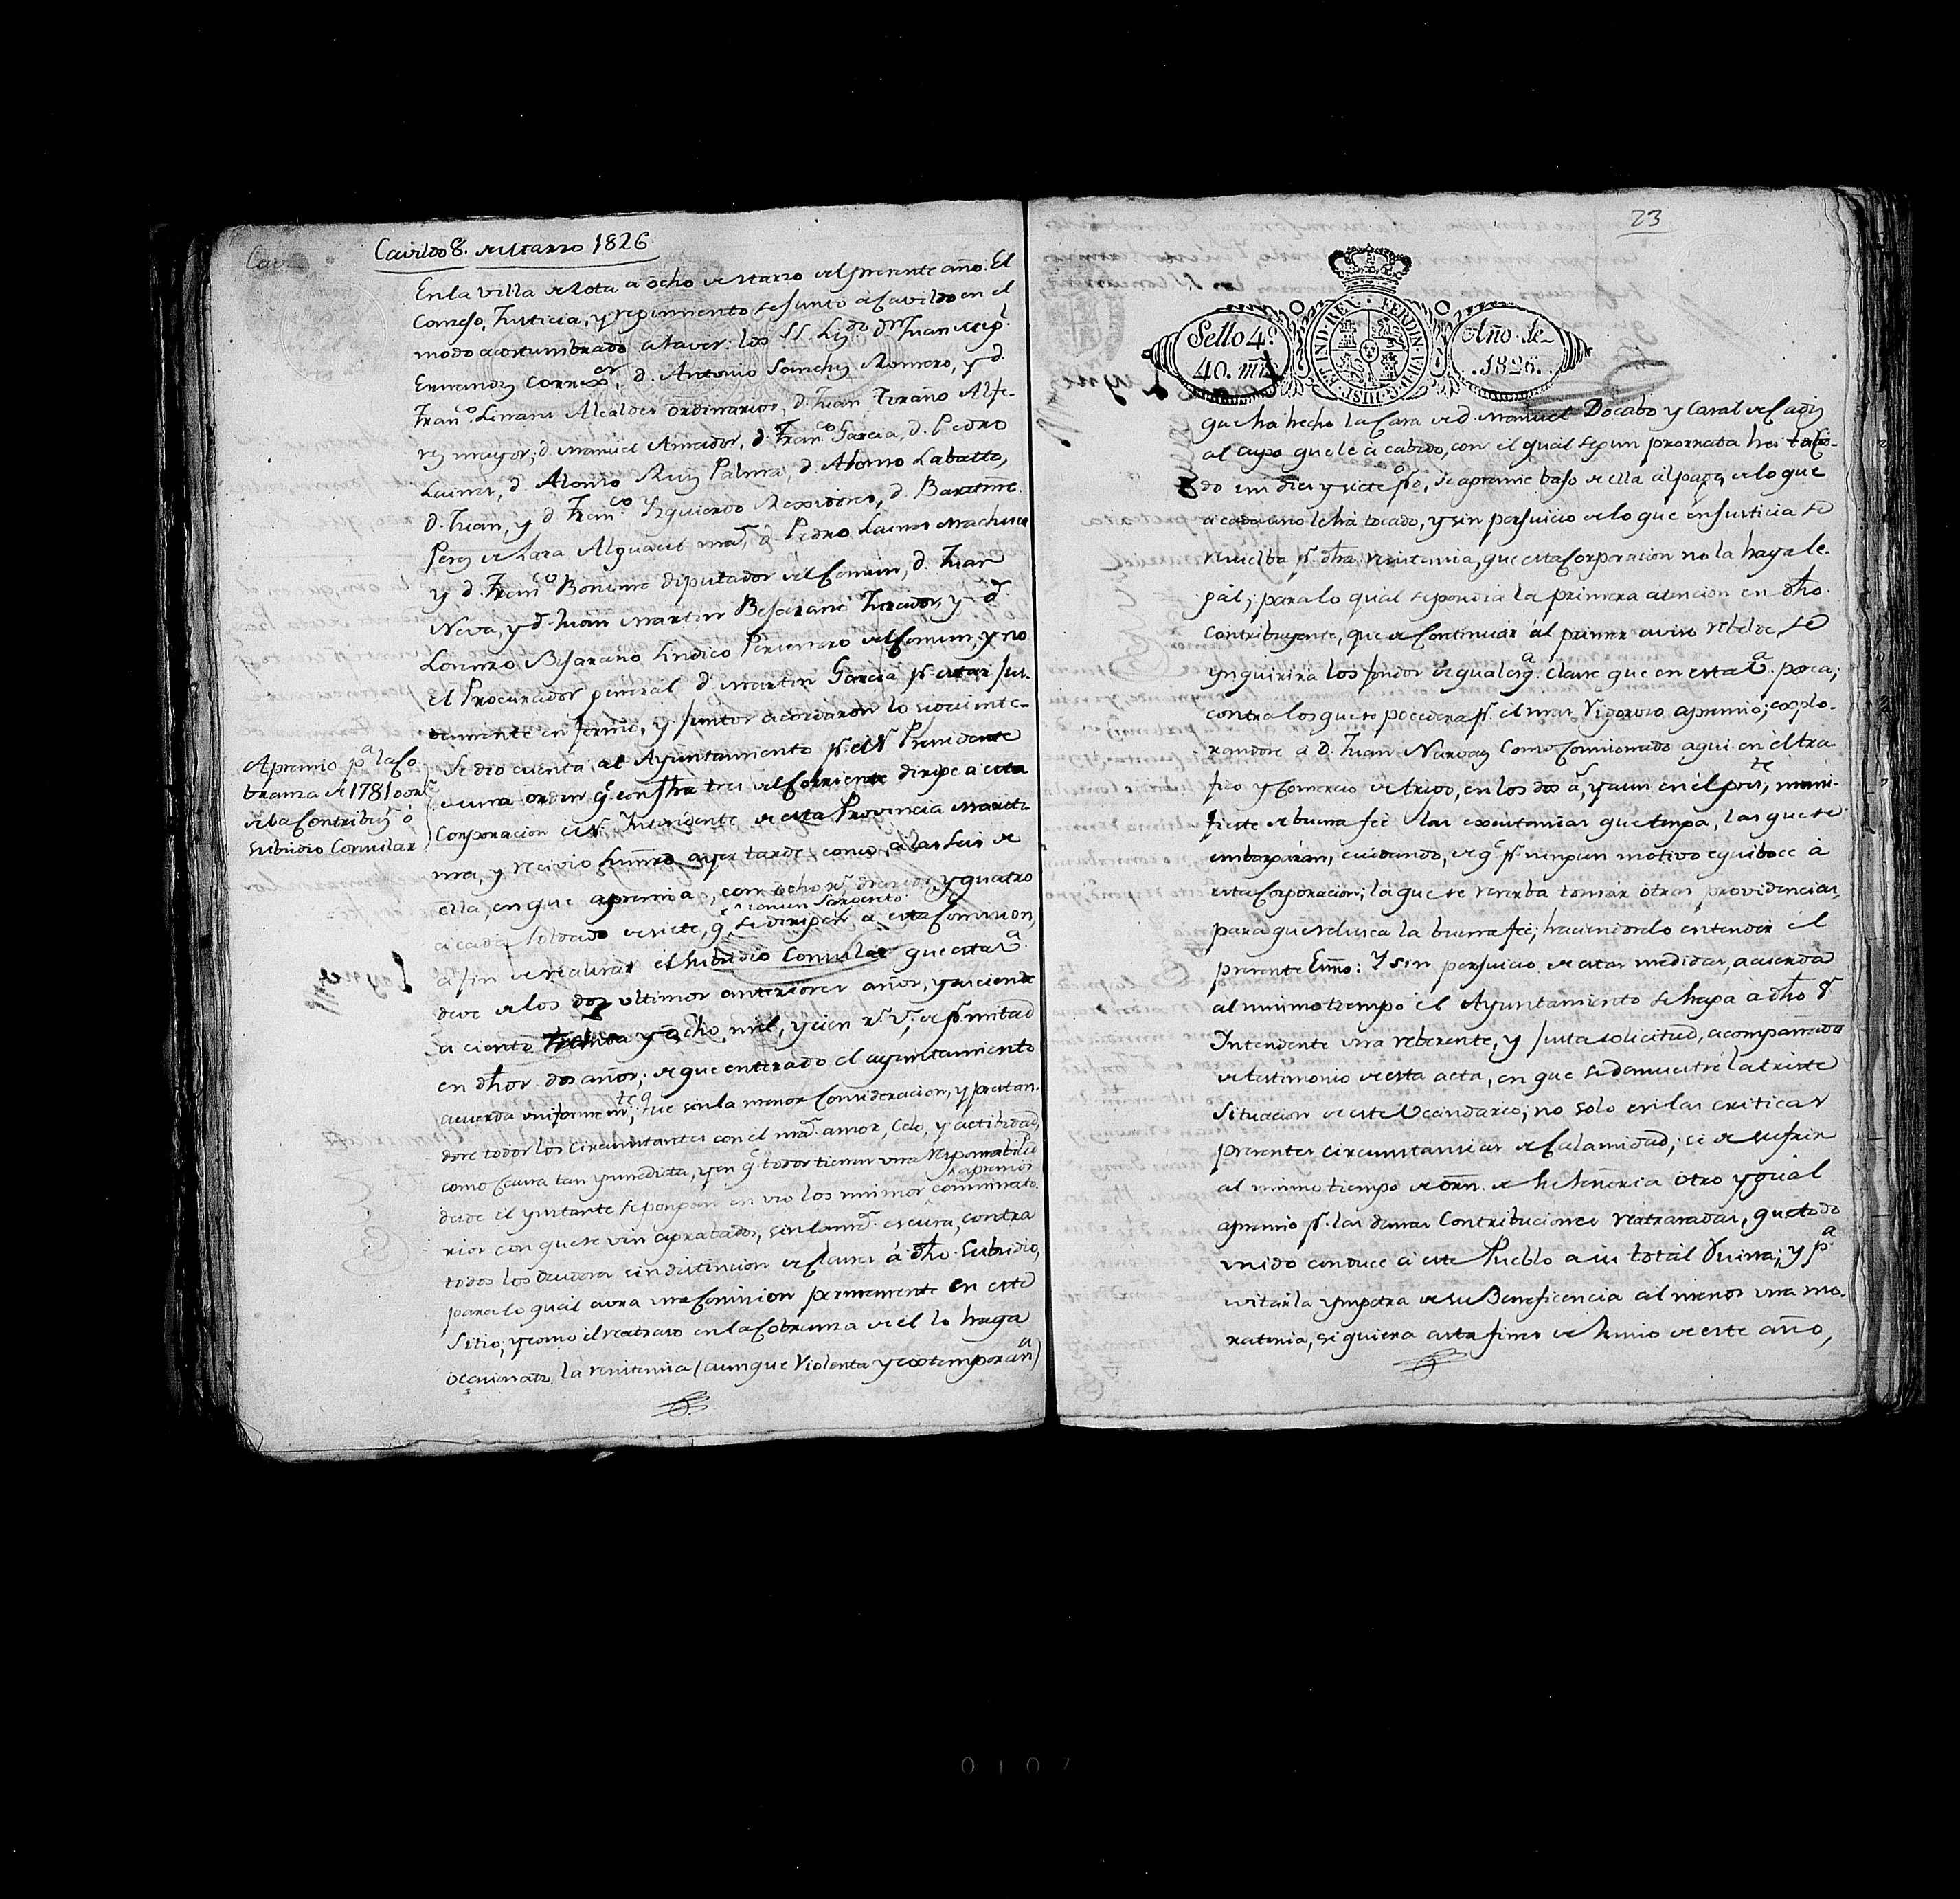 Cavildo 8. de Marzo 1826
En la villa de Rota a ocho de Marzo del presente año: El
Consejo, Justicia, y regimiento se juntó à Cavildo en el
modo acostumbrado a saver: los SS. Lizdo Dn Juan
Ernandez Correxor, d. Antonio Sanchez Romero, y d.
Franco Linans Alcaldes ordinarios, d. Juan Alfe-
rez mayor, d. Manuel Amador, d. Franco Garcia, d. Pedro
Laines, d. Alonso Ruiz Palma, d. Alonso Laballo,
d. Juan, y d. Franco Yzquierdo Rexidores, d. Bartme
Perez de Lara Alguacil mar, d. Pedro Laines Machuca
y d. Franco Bonome diputados del Comun, d. Juan
Neva, y d. Juan Martin Bejarano Jurados, y d.
Lorenzo Bejarano Sindico Personero del Comun, y no
el Procurador general d. Martin Garcia pr. estar
enfermo, y juntos acordaron lo siguiente
Apremio pa la Co
branza de 1781
de la Contribuzn ó
Subsidio Consular
Se dio cuenta al Ayuntamiento pr. el Sr Presidente
de una orden qe con fha tres del Corriente dirige a esta
Corporacion el Sr Intendente de esta Provincia
y recivio ayer tarde como a las seis de
ella, en que apremia, con ocho rs. diarios, y quatro
a cada soldado de siete, qe se dirigen a esta Comision,
con un Sargento
a fin de realizar el Subsidio Consular que esta Va
deve de los dos ultimos anteriores años, y asciende
a ciento y ocho mil, y cien rs. vn, de pr. mitad
en dhos dos años; de que enterado el ayuntamiento
acuerda uniformemte; Que sin la menor Consideracion, y prestan-
dose todos los Circunstantes con el mar. amor, Celo, y actibidad,
como Causa tan ynmediata, y en qe todos tienen una responsabilid
desde el ynstante se pongan en uso los mismos conminato
apremios
rios con que se ven apratados, sin la mr. escusa, contra
todos los deudores sin distincion de clases á dho Subsidio,
para lo qual avra una Comision permanente en este
Sitio; y como el retraso en la Cobranza de el lo haga
ocasionado la renitencia (aunque Violenta y extemporana)
23
Sello 4º
40. ms
HISP. ET IND. REX. FERDIN. VII. D. G.
Año de
1826.
que ha hecho la Casa de d. Manuel Docabo y Canal de Cadiz
al cupo que le a cabido, con el qual segun prorrata ha
do en diez y siete ps, se apremie bajo de ella al pago de lo que
a cada uno le ha tocado, y sin perjuicio de lo que en Justicia se
resuelba pr. dha renitencia, que esta Corporacion no la haya le-
gal; para lo qual se pondrá la primera atencion en dho
Contribuyente, que de Continuar al primer aviso rebelde, se
ynquirirá los fondos de qualqa clase que en esta Va. posea;
contra los que se procedera pr. el mas Vigoroso apremio; explo-
randose á D. Juan Narvaez Como Comisionado aqui en el tra-
fico y Comercio de trigo, en los dos as, y aun en el preste, mani-
fieste de buena fee las existencias que tenga, las que se
embargarán, cuidando, de qe pr. ningun motivo equiboce á
esta Corporacion; la que se reserba tomar otras providencias,
para que reluzca la buena fee; haciendoselo entender el
presente Esno: Y sin perjuicio de estas medidas, acuerda
al mismo tiempo el Ayuntamiento se haga a dho Sr
Intendente una reberente, y justa solicitud, acompañada
de testimonio de esta acta, en que se demuestre la triste
Situacion de este Vecindario; no solo en las criticas
presentes circunstancias de Calamidad; si de sufrir
al mismo tiempo de orn. de Su Señoria otro ygual
apremio pr. las demas Contribuciones retrasadas, que todo
unido conduce á este Pueblo a su total Ruina; y pa
evitarla ympetra de su Beneficencia al menos una mo-
ratoria, siquiera asta fines de Junio de este año,